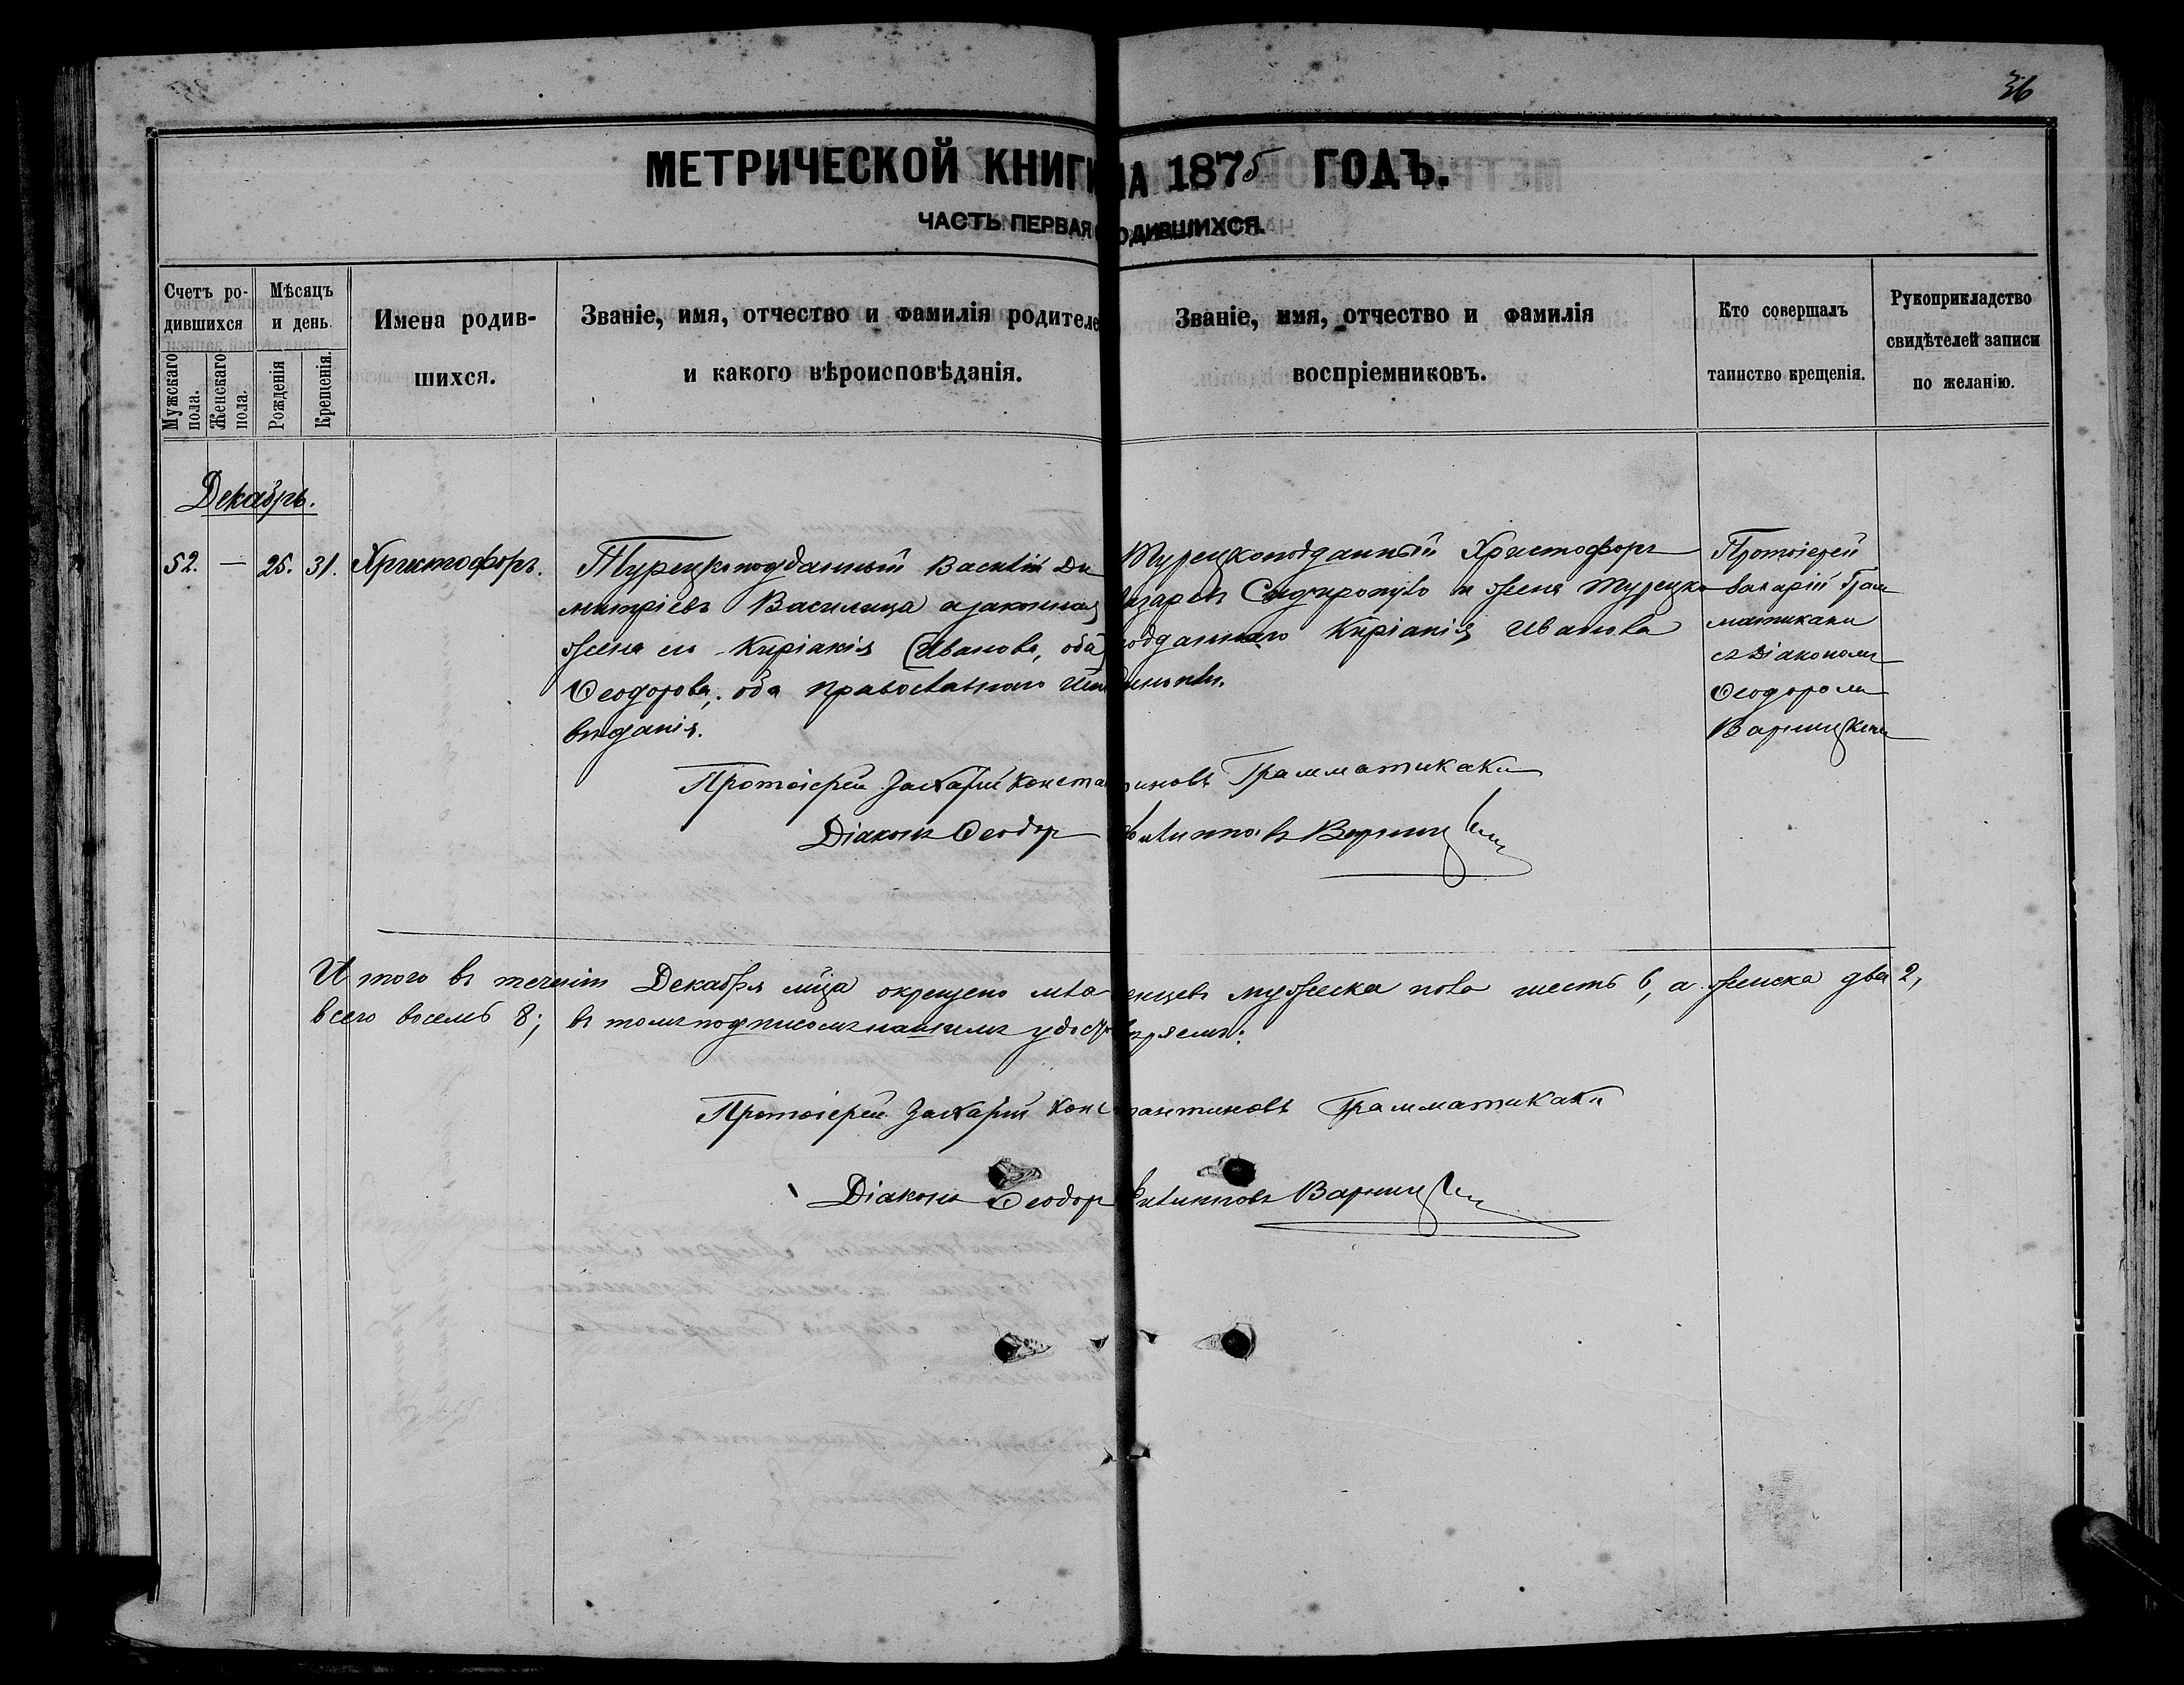 36
МЕТРИЧЕСКОЙ КНИГИ НА 1875 ГОДЪ.
ЧАСТЬ ПЕРВАЯ РОДИВШИХСЯ.
Счетъ ро-
дившихся
Мужскаго пола.
Женскаго пола.
Мѣсяцъ
и день.
Рожденія
Крещенія.
Имена родив-
шихся.
Званіе, имя, отчество и фамилія родителе
и какого вѣроисповѣданія.
Званіе, имя, отчество и фамилія
воспріемниковъ.
Кто совершалъ
таинство крещенія.
Рукоприкладство
свидѣтелей записи
по желанію.
Декабрь.
52. — 25. 31. Христофоръ.
Турецкоподданный Василій Ди
митріевъ Василица а законная
жена его Киріакія (Иванова, оба)
Ѳеодорова, оба православнаго
вѣданія.
Турецкоподданный Христофоръ
Лазаревъ и жена Турецко
подданнаго Киріакія Иванова
Протоіерей
Захарій Грам
матикаки
съ Діакономъ
Ѳеодоромъ
Варницкимъ
Протоіерей Захарій Константиновъ Грамматикаки
Діаконъ Ѳеодоръ Филипповъ Варницкій
Итого въ теченіи Декабря мѣца окрещено младенцевъ мужеска пола шесть 6, а женска два 2,
всего восемь 8; въ томъ подписомъ нашимъ удостовѣряемъ:
Протоіерей Захарій Константиновъ Грамматикаки
Діаконъ Ѳеодоръ Филипповъ Варницкій